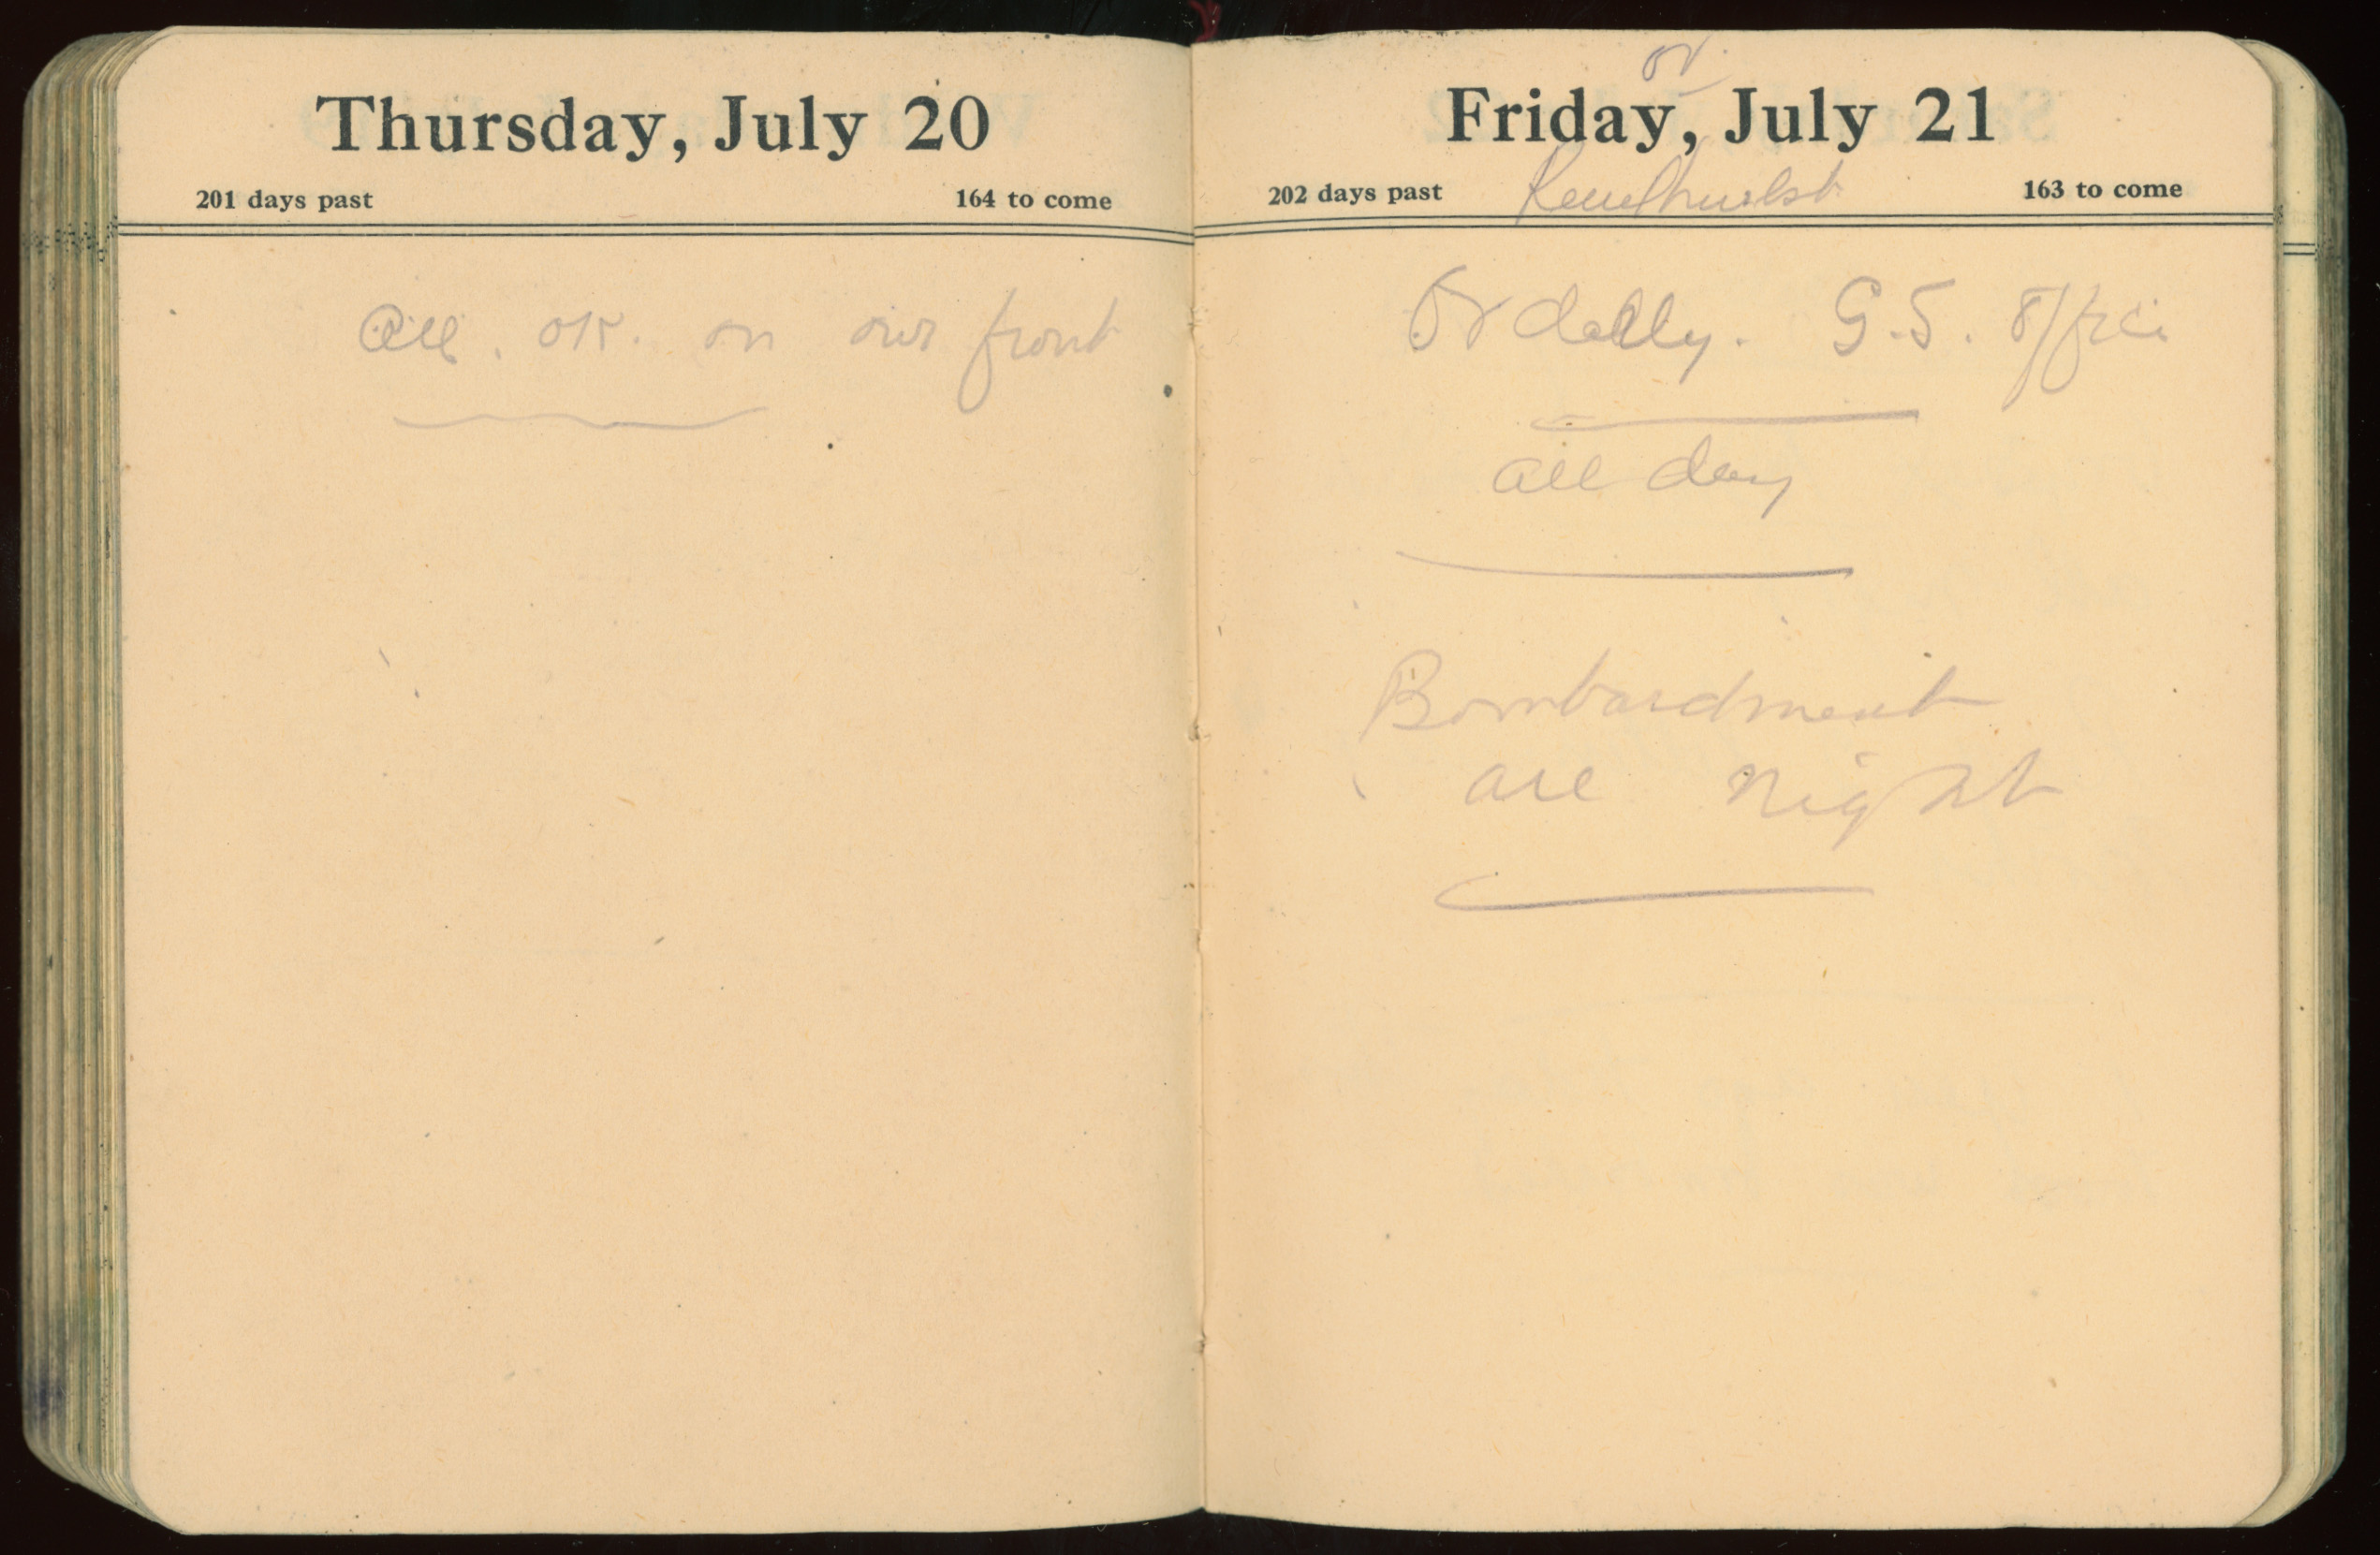 Thursday, July 20
201 days past 164 to come
All. OK. on our front
or.
Friday, July 21
202 days past 163 to come
Ordally. G.S. Office
all day
Bombardment
all night